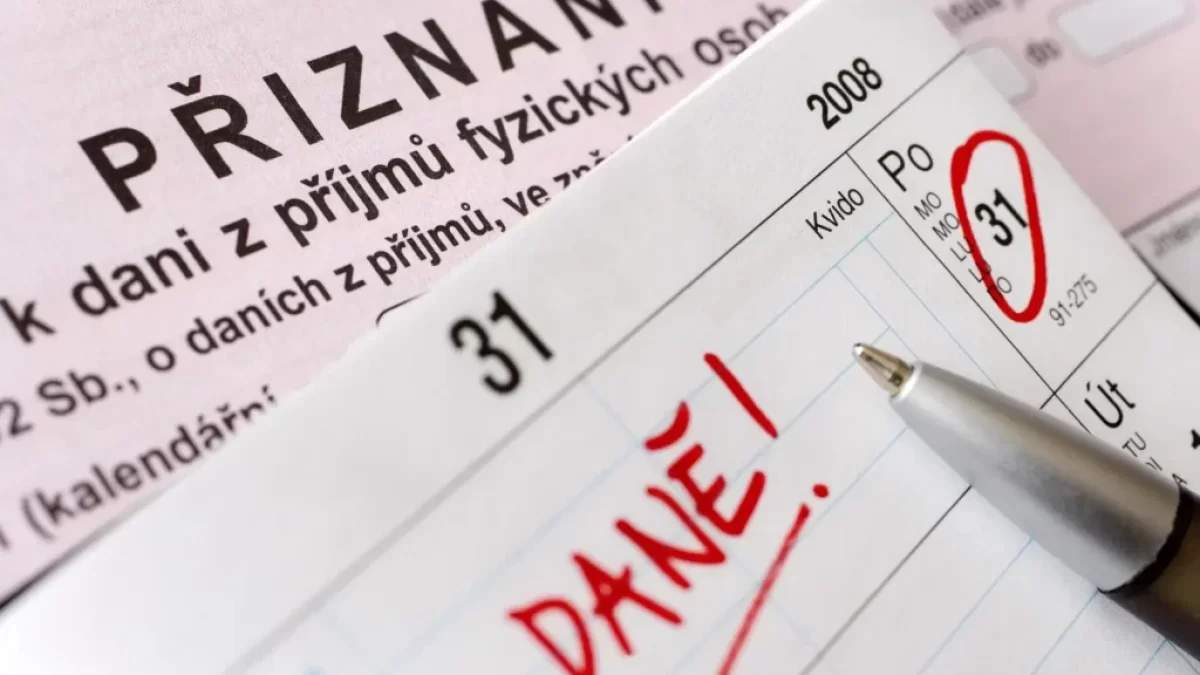 PŘIZNÁN
k dani z příjmů fyzických osob
2 Sb., o daních z příjmů, ve zně
(kalendářní
2008
31
Kvido
Po
31
MO
MO
LU
LU
TO
91-275
Út
TU
DI
DANĚ!
do